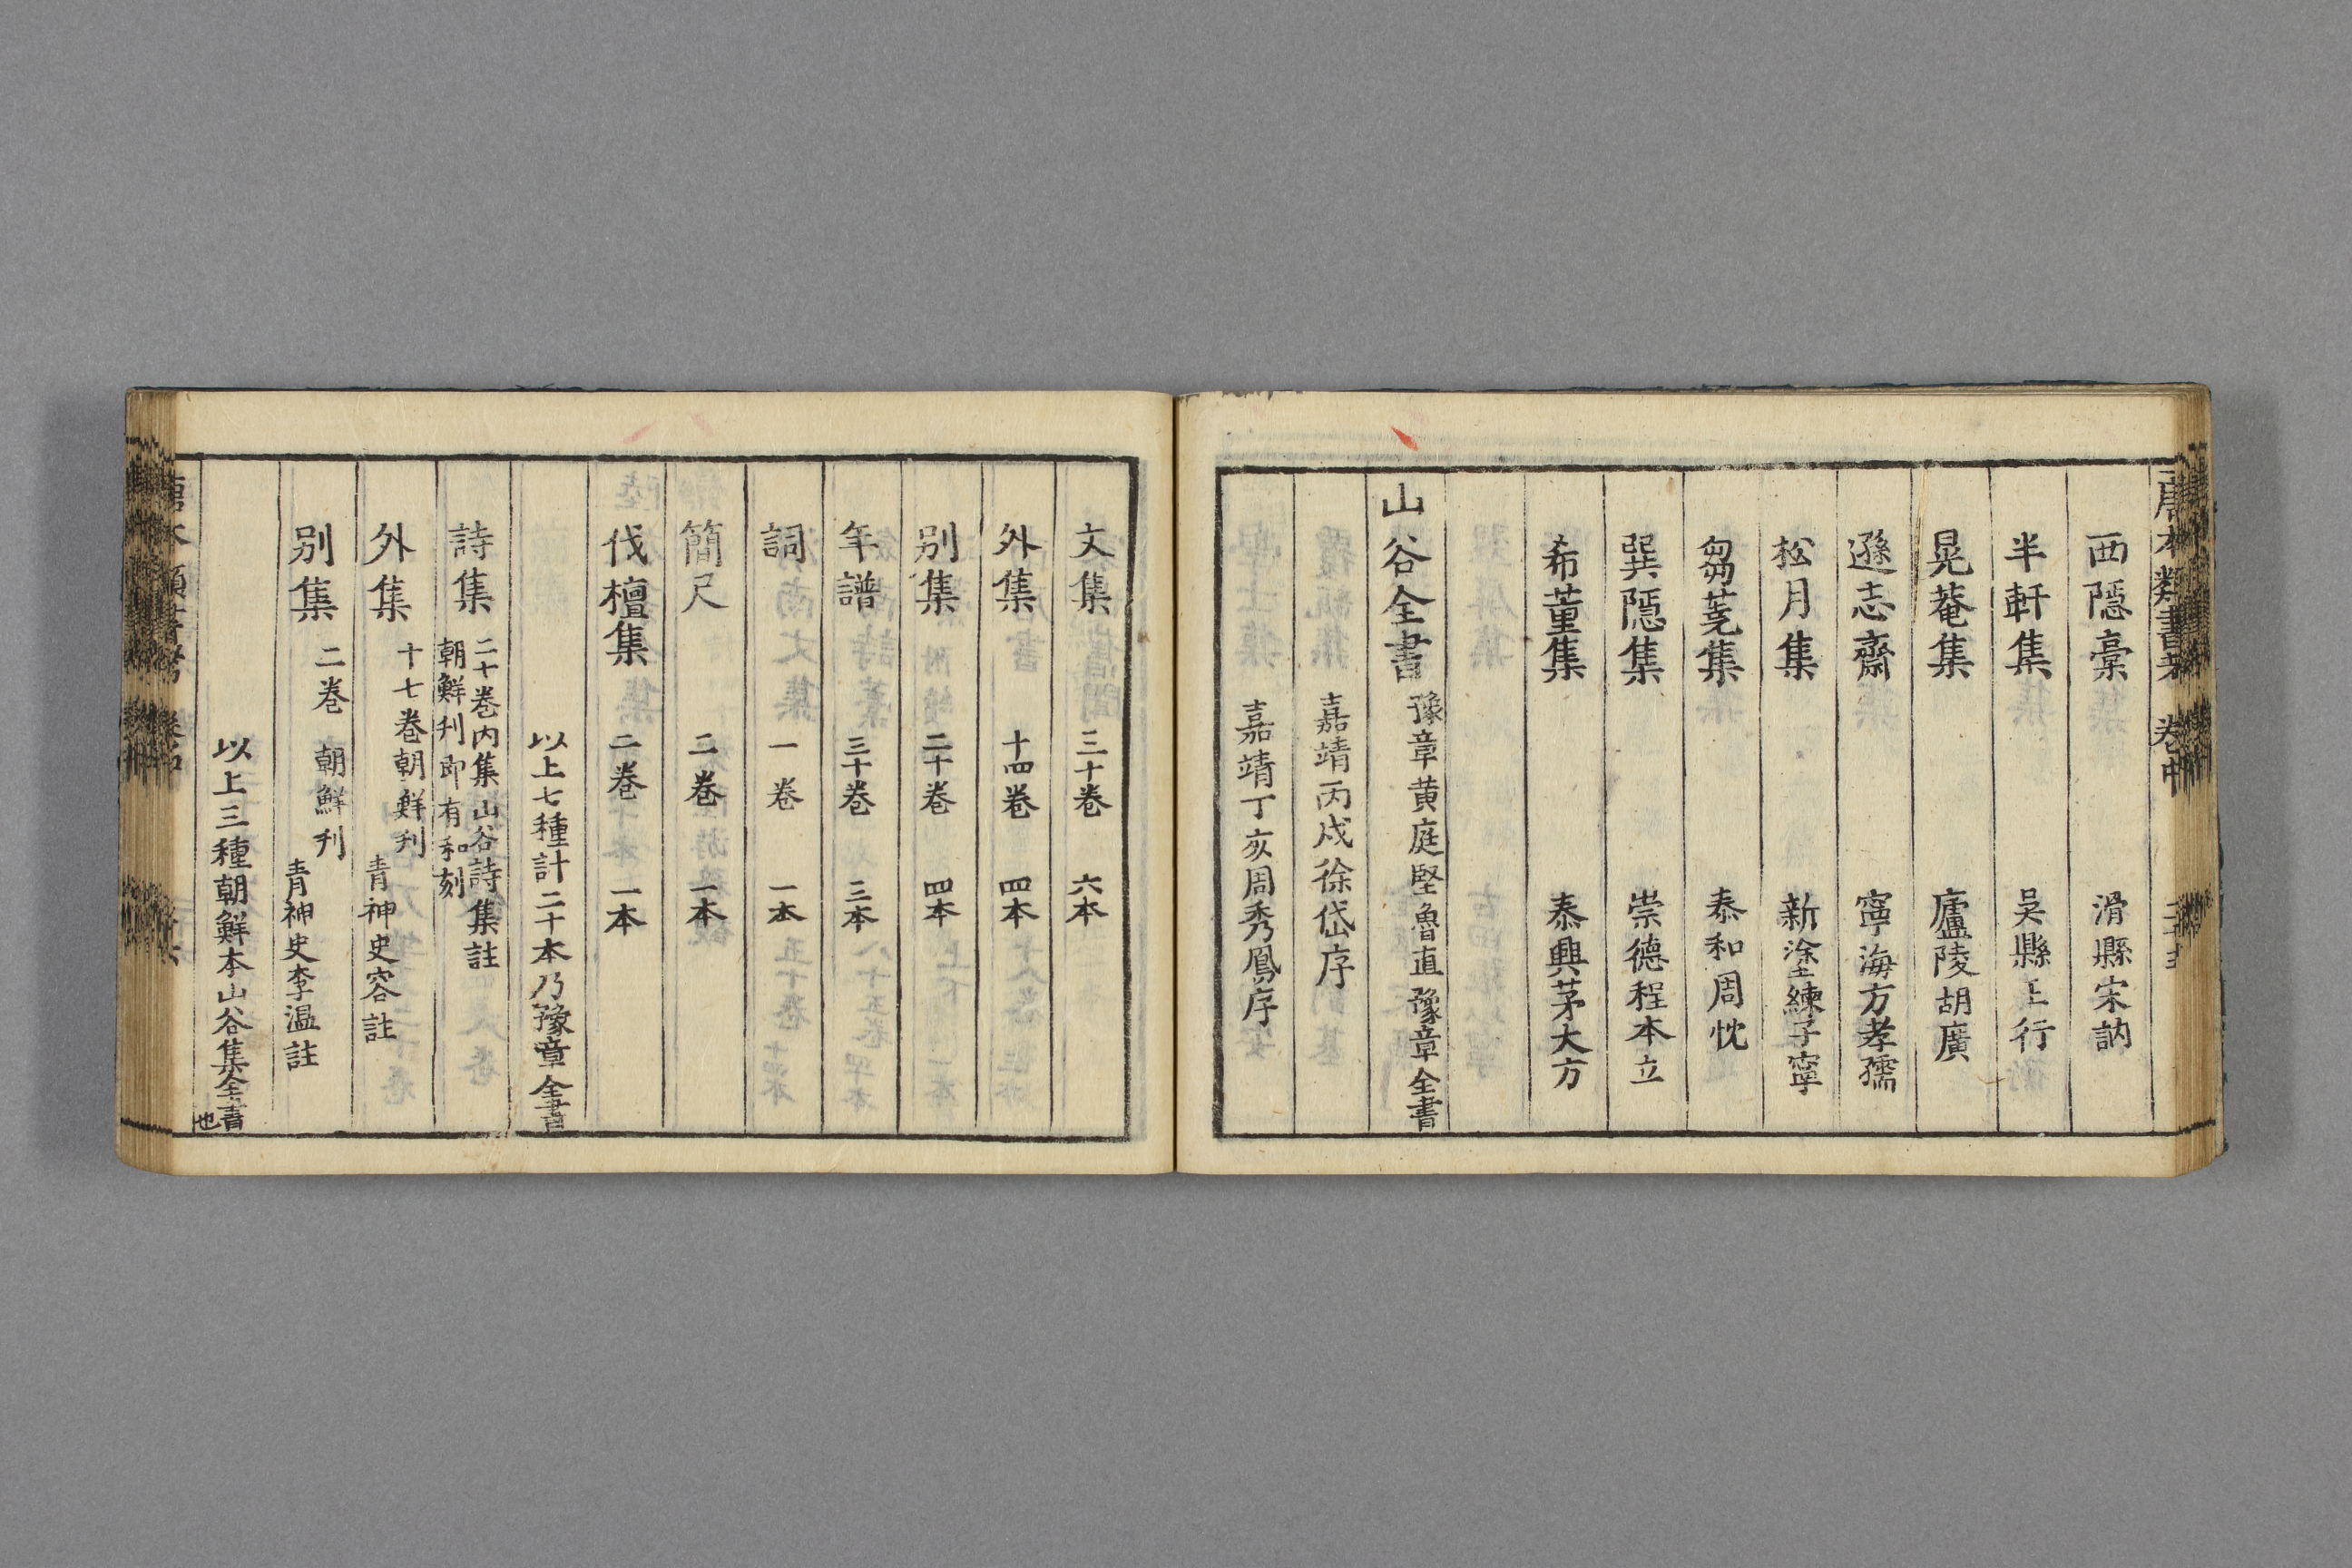 唐本類書考 卷中
西隱稾 滑縣宋訥
半軒集 吳縣王行
晃菴集 廬陵胡廣
遜志齋 寧海方孝孺
松月集 新淦練子寧
芻蕘集 泰和周忱
巽隱集 崇德程本立
希董集 泰興茅大方
山谷全書 豫章黄庭堅魯直豫章全書
嘉靖丙戌徐岱序
嘉靖丁亥周秀鳳序
文集 三十卷 六本
外集 十四卷 四本
别集 二十卷 四本
年譜 三十卷 三本
詞 一卷 一本
簡尺 二卷 一本
伐檀集 二卷 一本
以上七種計二十本乃豫章全書
詩集 二十卷内集山谷詩集註
朝鮮刋即有和刻
外集 十七卷朝鮮刋
青神史容註
别集 二卷 朝鮮刋
青神史李温註
以上三種朝鮮本山谷集全書也